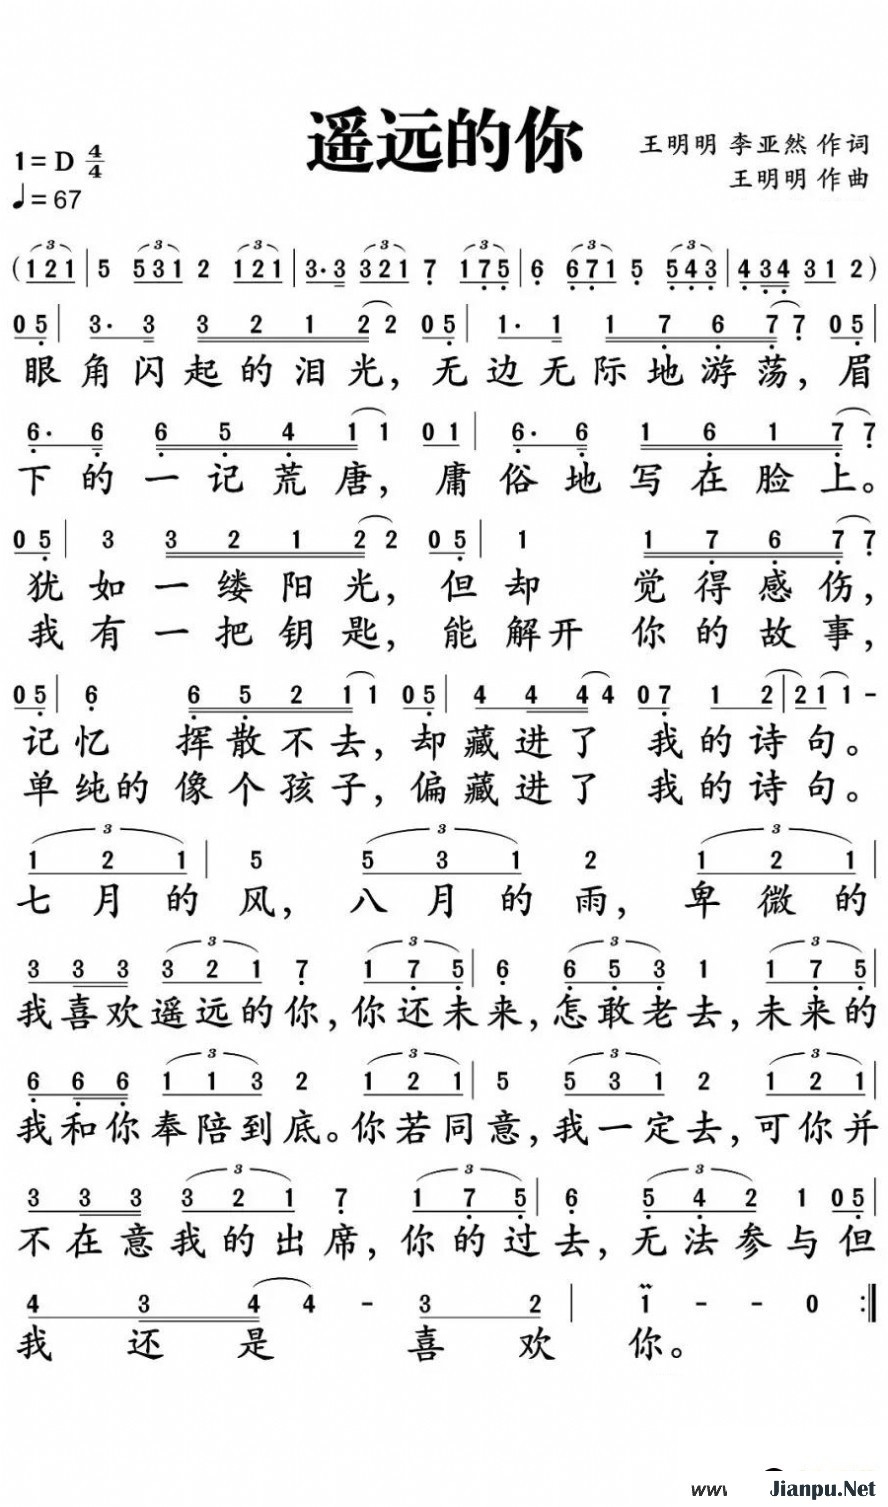 遥远的你
1=D 4/4
王明明 李亚然 作词
♩=67
王明明 作曲
(121|5 531 2 121|3·3 321 7 175|6 671 5 543|434 312)
05|3· 3 3 2 1 2 2 05|1· 1 1 7 6 7 7 05|
眼角闪起的泪光,无边无际地游荡,眉
6· 6 6 5 4 1 1 01|6· 6 1 6 1 7 7
下的一记荒唐,庸俗地写在脸上。
05|3 3 2 1 2 2 05|1 1 7 6 7 7
犹如一缕阳光,但却 觉得感伤,
我有一把钥匙,能解开 你的故事,
05|6 6 5 2 1 1 05|4 4 4 4 07 1 2|21 1 -
记忆 挥散不去,却藏进了 我的诗句。
单纯的 像个孩子,偏藏进了 我的诗句。
1 2 1|5 5 3 1 2 1 2 1|
七月的风,八月的雨,卑微的
3 3 3 3 2 1 7 1 7 5|6 6 5 3 1 1 7 5|
我喜欢遥远的你,你还未来,怎敢老去,未来的
6 6 6 1 1 3 2 1 2 1|5 5 3 1 2 1 2 1|
我和你奉陪到底。你若同意,我一定去,可你并
3 3 3 3 2 1 7 1 7 5|6 5 4 2 1 05|
不在意我的出席,你的过去,无法参与但
4 3 4 4 - 3 2 | 1 - - 0 :||
我还是 喜欢 你。
www. Jianpu.Net